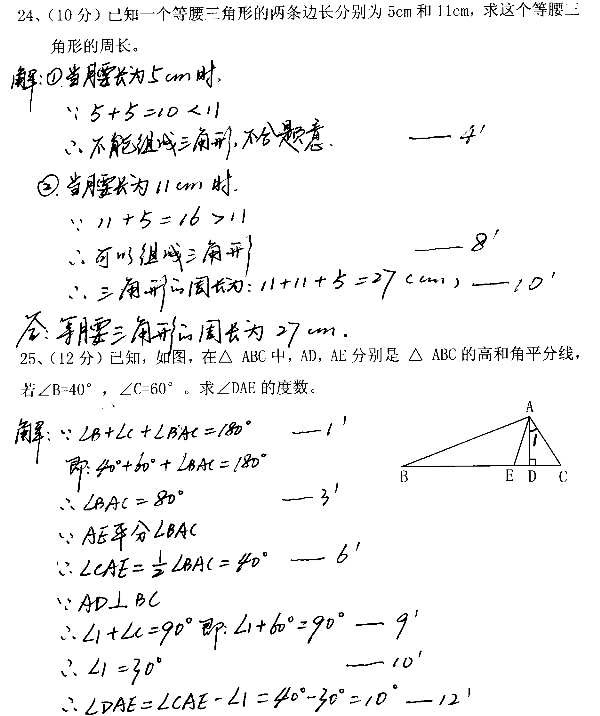 24、(10 分) 已知一个等腰三角形的两条边长分别为 5cm 和 11cm，求这个等腰三
角形的周长。
解:①当腰长为5cm时.
∵ 5+5=10<11
∴ 不能组成三角形,不合题意. —— 4'
②.当腰长为11cm时.
∵ 11+5=16>11
∴ 可以组成三角形 —— 8'
∴ 三角形的周长为: 11+11+5=27(cm) —— 10'
答:等腰三角形的周长为 27cm.
25、(12 分) 已知，如图，在△ ABC 中，AD，AE 分别是 △ ABC 的高和角平分线，
若∠B=40°，∠C=60°。求∠DAE 的度数。
解: ∵ ∠B+∠C+∠BAC=180° —— 1'
即: 40°+60°+∠BAC=180°
∴ ∠BAC=80° —— 3'
∵ AE平分∠BAC
∴ ∠CAE=½∠BAC=40° —— 6'
∵ AD⊥BC
∴ ∠1+∠C=90° 即: ∠1+60°=90° —— 9'
∴ ∠1=30° —— 10'
∴ ∠DAE=∠CAE-∠1=40°-30°=10° —— 12'
A
1
B E D C